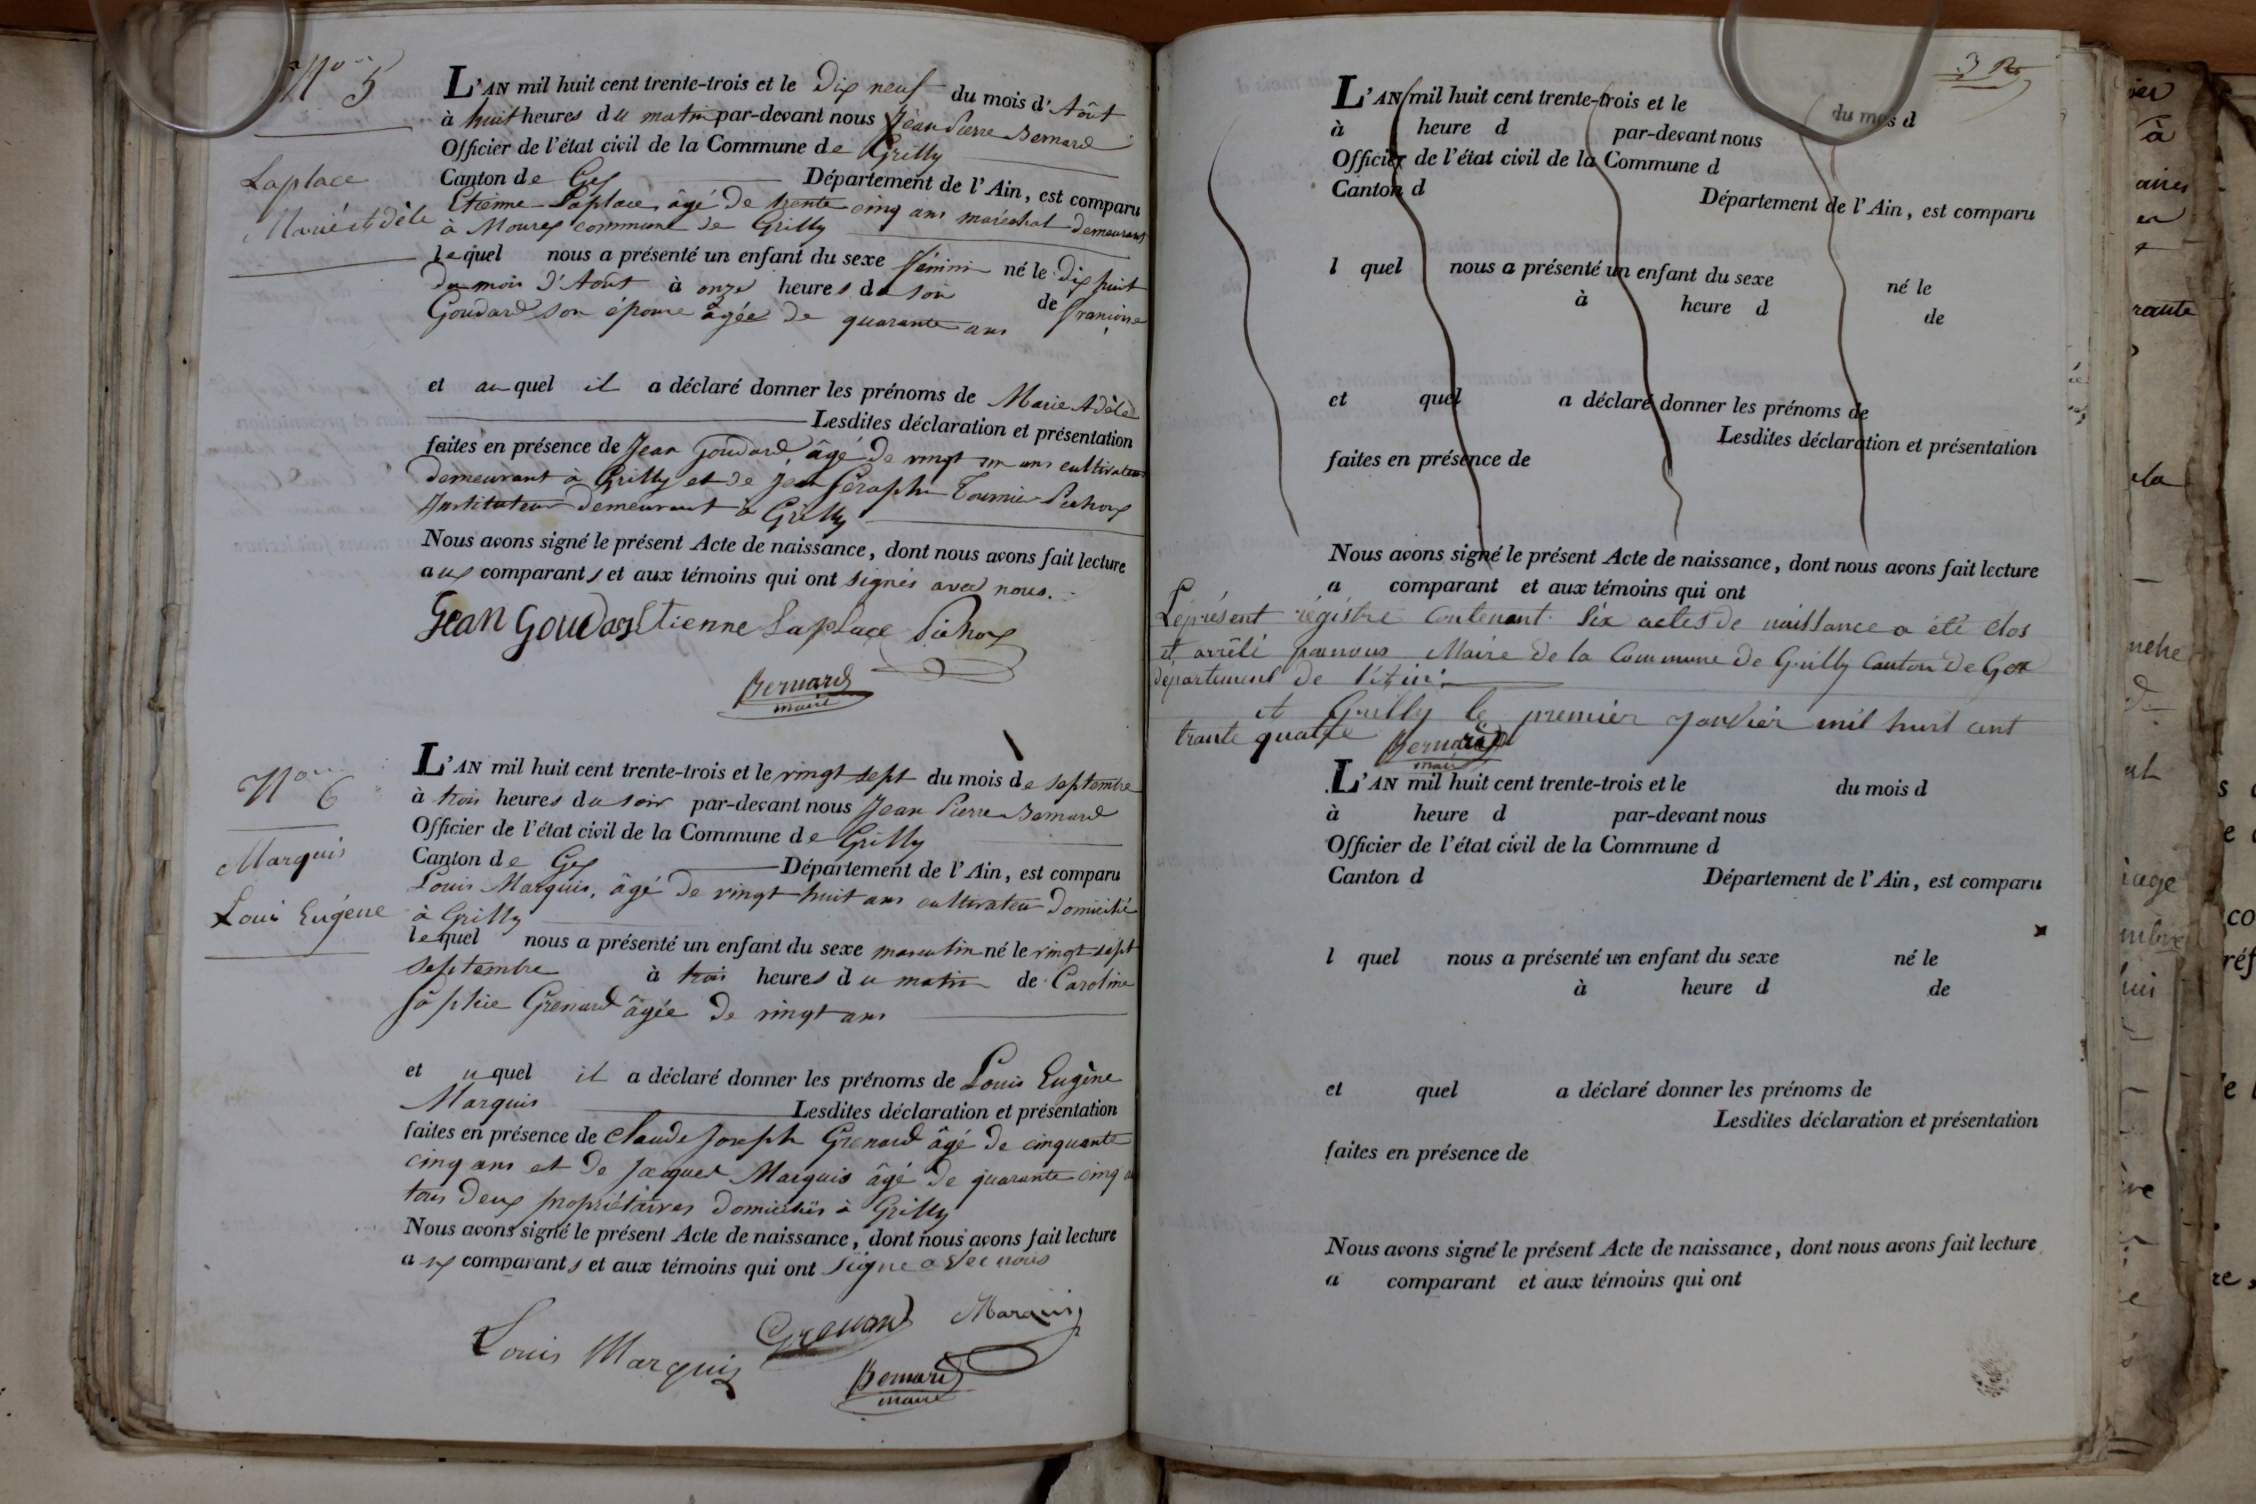 N° 5
Laplace
Marie Adèle
L'AN mil huit cent trente-trois et le Dix neuf du mois d'Août
à huit heures du matin par-devant nous Jean Pierre Bernard
Officier de l'état civil de la Commune de Grilly
Canton de Gex Département de l'Ain, est comparu
Etienne Laplace, âgé de trente cinq ans maréchal demeurant
à Mourex commune de Grilly
lequel nous a présenté un enfant du sexe féminin né le dix huit
du mois d'Août à onze heures du soir de françoise
Goudard son épouse âgée de quarante ans
et au quel il a déclaré donner les prénoms de Marie Adèle
Lesdites déclaration et présentation
faites en présence de Jean Goudard, âgé de vingt un ans cultivateur
demeurant à Grilly et de Jean Séraphin Tournier Pichoux
Instituteur demeurant à Grilly
Nous avons signé le présent Acte de naissance, dont nous avons fait lecture
aux comparants et aux témoins qui ont signés avec nous.
Jean Goudard Etienne Laplace Pichoux
Bernard
maire
N° 6
Marquis
Loui Eugéne
L'AN mil huit cent trente-trois et le vingt sept du mois de septembre
à trois heures du soir par-devant nous Jean Pierre Bernard
Officier de l'état civil de la Commune de Grilly
Canton de Gex Département de l'Ain, est comparu
Louis Marquis, âgé de vingt huit ans cultivateur domicilié
à Grilly
lequel nous a présenté un enfant du sexe masculin né le vingt sept
septembre à trois heures du matin de Caroline
sophie Grenard âgée de vingt ans
et u quel il a déclaré donner les prénoms de Louis Eugène
Marquis Lesdites déclaration et présentation
faites en présence de claude Joseph Grenard âgé de cinquante
cinq ans et de Jacques Marquis âgé de quarante cinq a
tous deux propriétaires domiciliés à Grilly
Nous avons signé le présent Acte de naissance, dont nous avons fait lecture
aux comparants et aux témoins qui ont signé avec nous
Louis Marquis Grenard Marquis
Bernard
maire
L'AN mil huit cent trente-trois et le du mois d
à heure d par-devant nous
Officier de l'état civil de la Commune d
Canton d Département de l'Ain, est comparu
l quel nous a présenté un enfant du sexe né le
à heure d de
et quel a déclaré donner les prénoms de
Lesdites déclaration et présentation
faites en présence de
Nous avons signé le présent Acte de naissance, dont nous avons fait lecture
a comparant et aux témoins qui ont
Le présent régistre contenant Six actes de naissance a été clos
et arrêté par nous Maire de la Commune de Grilly Canton de Gex
département de l'Ain.
A Grilly le premier janvier mil huit cent
trante quatre
Bernard
maire
L'AN mil huit cent trente-trois et le du mois d
à heure d par-devant nous
Officier de l'état civil de la Commune d
Canton d Département de l'Ain, est comparu
l quel nous a présenté un enfant du sexe né le
à heure d de
et quel a déclaré donner les prénoms de
Lesdites déclaration et présentation
faites en présence de
Nous avons signé le présent Acte de naissance, dont nous avons fait lecture
a comparant et aux témoins qui ont